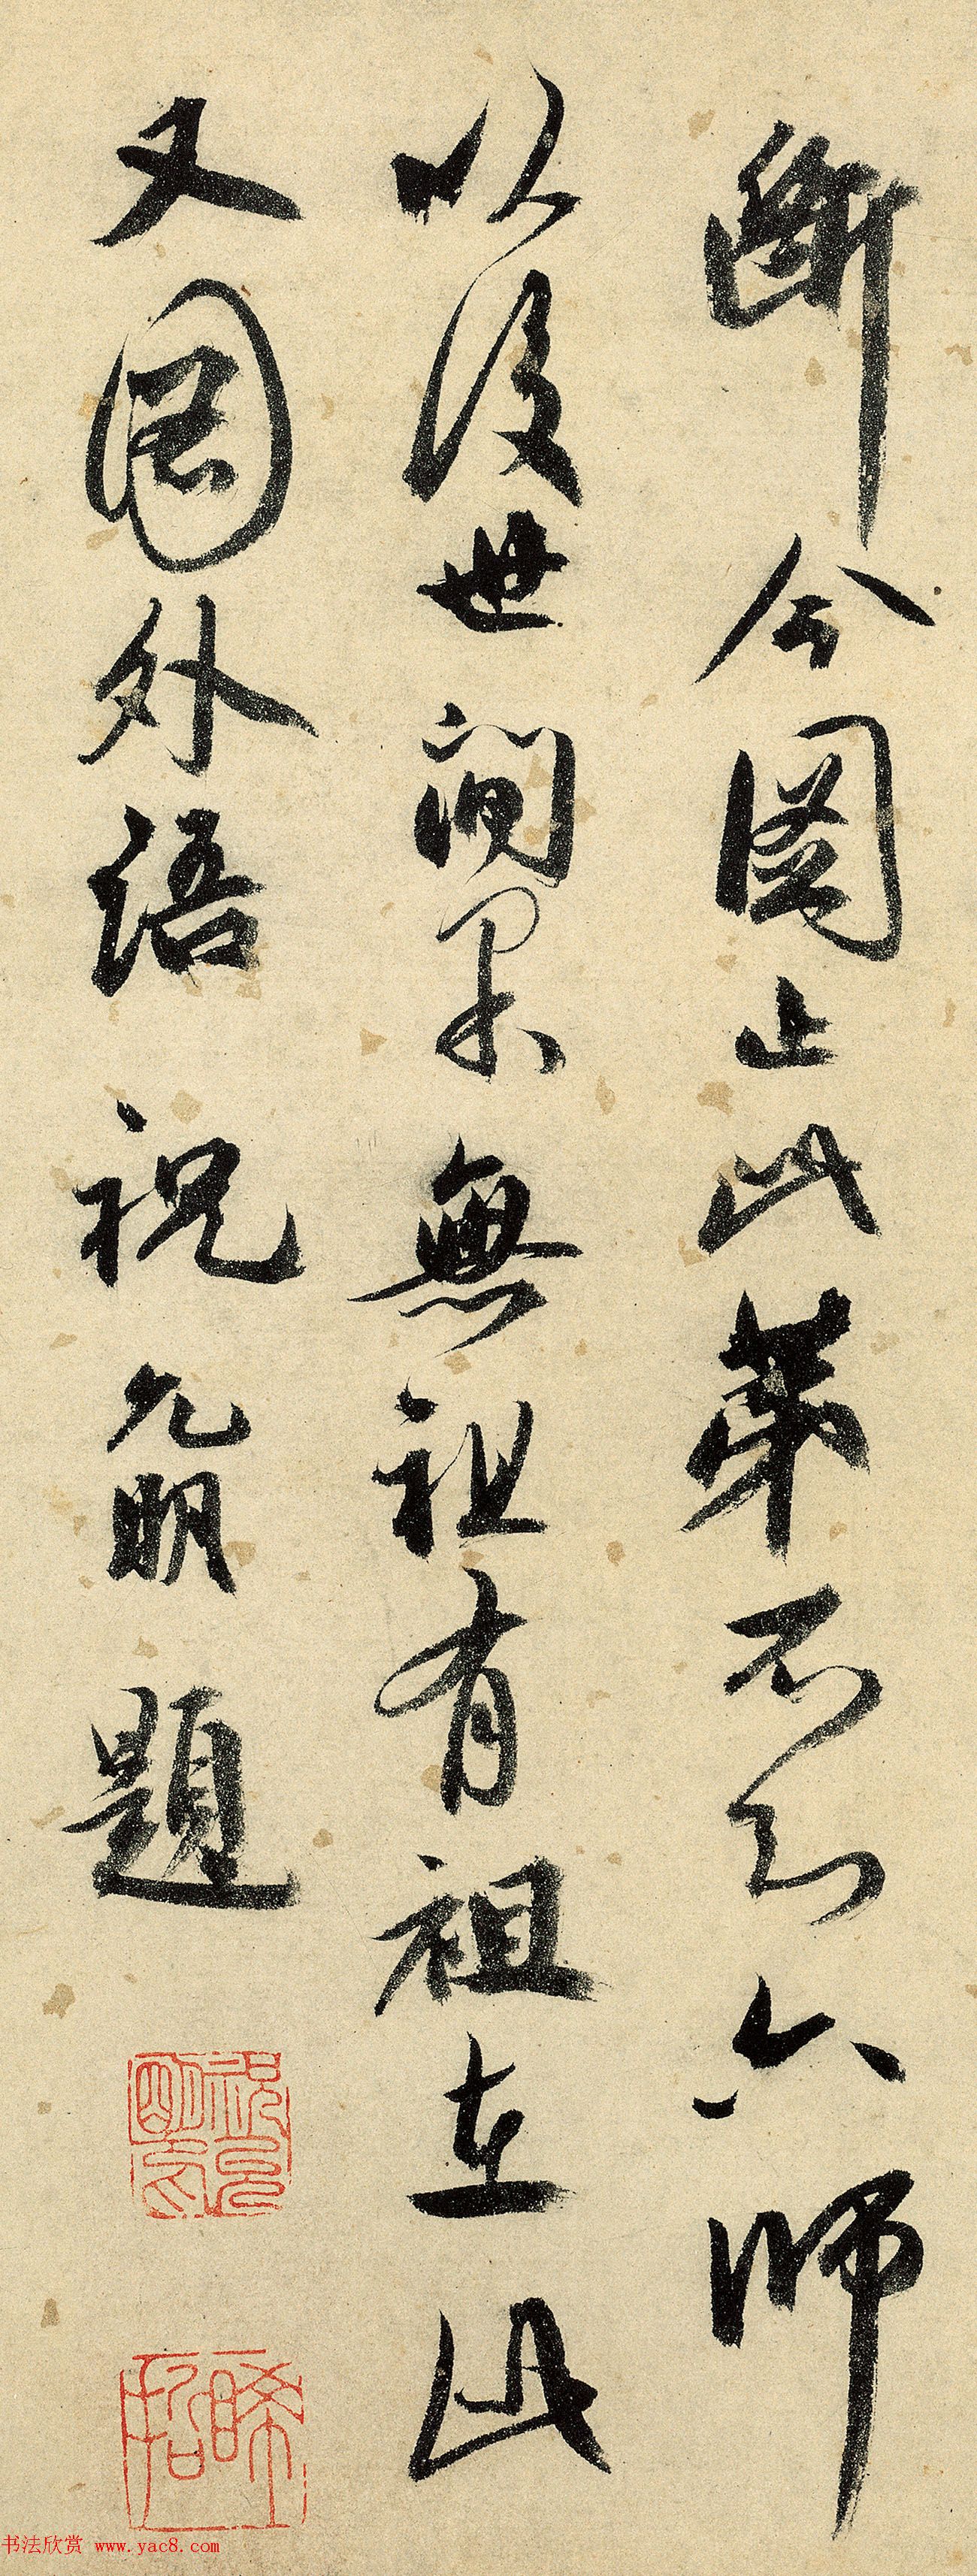 斷今圖止此第不知六師
以後世間果無祖有祖在此
又圖外語祝允明題
祝允明印
晞哲
书法欣赏 www.yac8.com